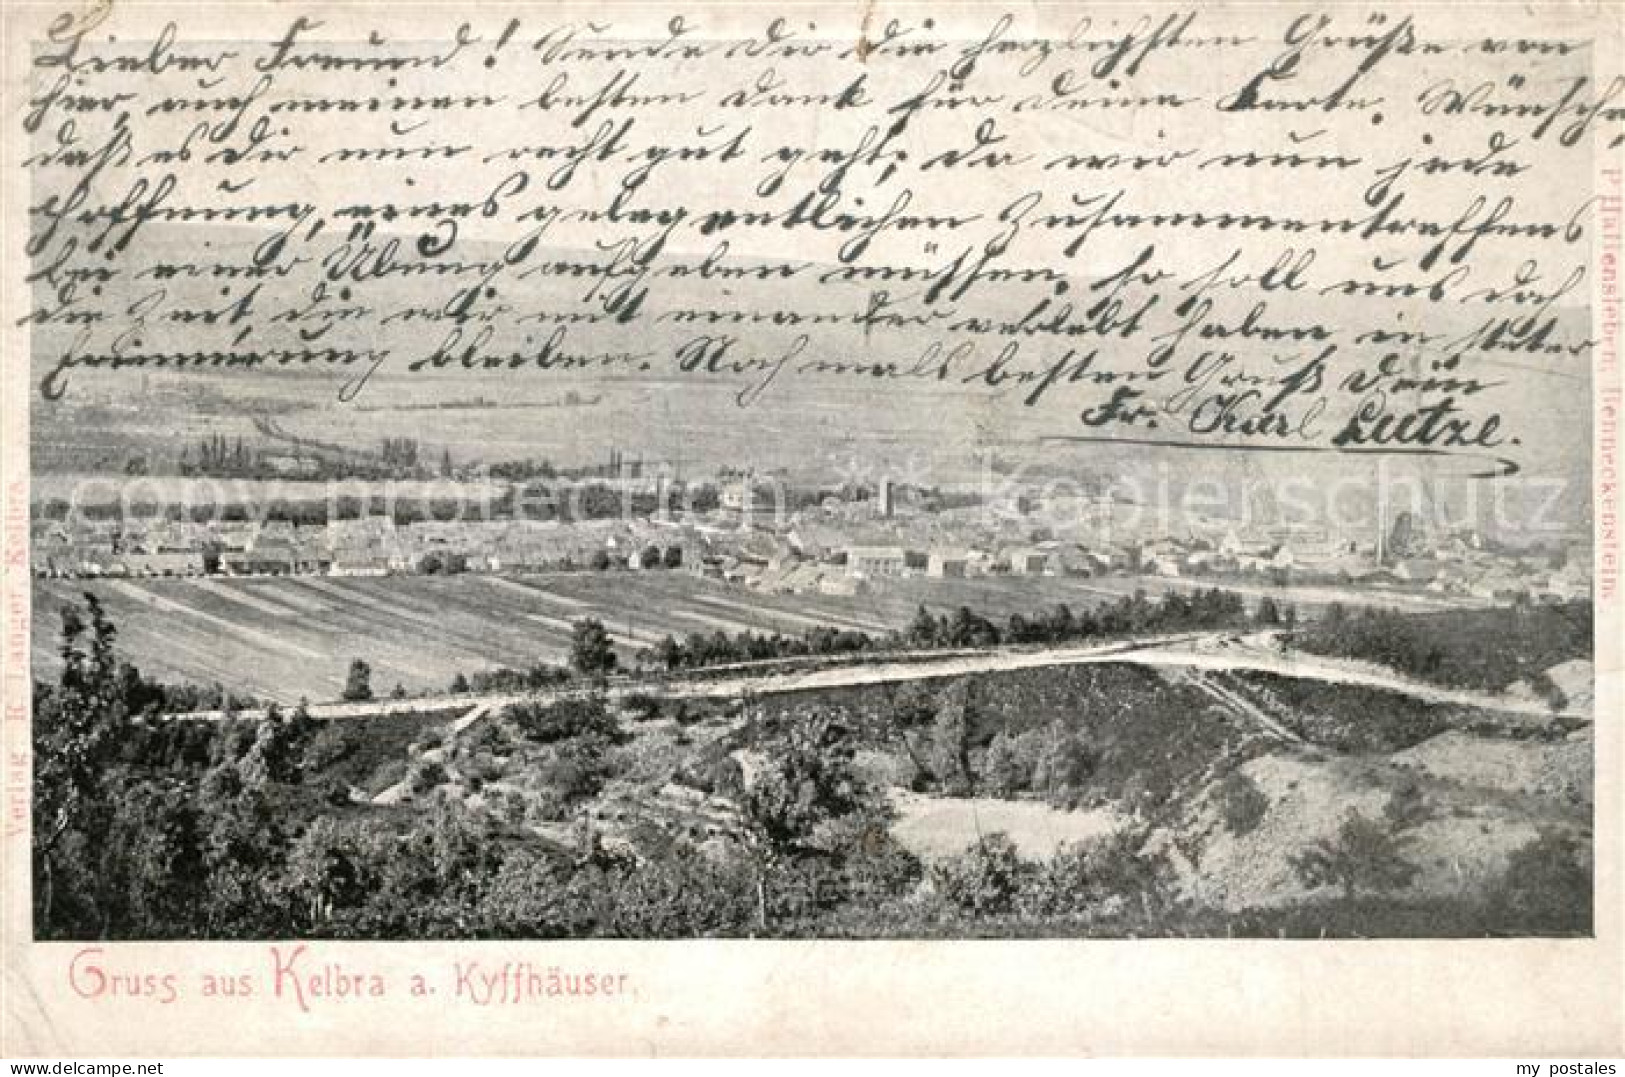 Lieber Freund! Sende Dir die herzlichsten Grüße von
hier, auch meinen besten Dank für deine Karte. Wünsche
daß es dir nun recht gut geht; da wir nun jede
Hoffnung, eines gelegentlichen Zusammentreffens
bei einer Übung aufgeben müssen, so soll uns doch
die Zeit, die wir mit einander verlebt haben, in steter
Erinnerung bleiben. Nochmals besten Gruß Dein
Fr. Karl Lutze.
copy protection kopierschutz
Verlag R. Langer Kelbra
P. Hallensleben, Benneckenstein.
Gruss aus Kelbra a. Kyffhäuser.
the collector's marketplace
my postales